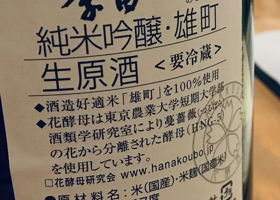 純米吟醸・雄町
生原酒 <要冷蔵>
●酒造好適米「雄町」を100%使用
●花酵母は東京農業大学短期大学部
酒類学研究室により蔓薔薇
の花から分離された酵母(HNG-5)
を使用しています。
花酵母研究会 www.hanakoubo.jp
原材料名:米(国産)・米麹(国産米)